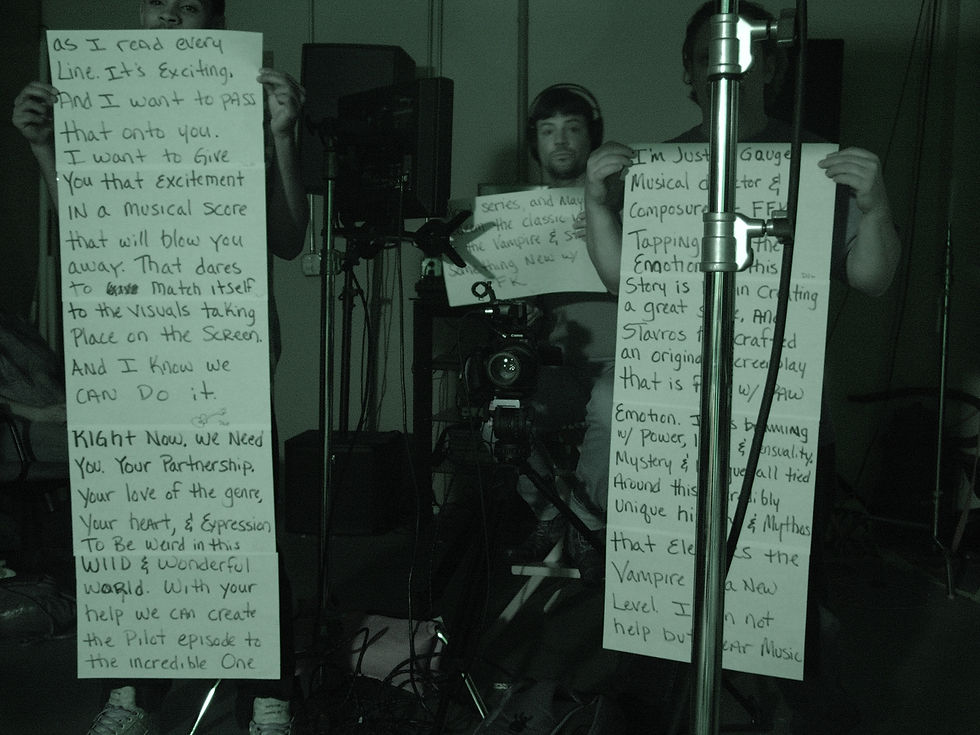 as I read every
Line. It's Exciting.
And I want to PASS
that onto you.
I want to Give
You that Excitement
IN a musical Score
that will blow you
away. That dares
to match itself
to the visuals taking
Place on the Screen.
And I Know we
CAN DO it.
Right Now, we Need
You. Your Partnership.
Your love of the genre,
Your heart, & Expression
To Be Weird in this
WIld & Wonderful
world. With your
help we can create
the Pilot episode to
the incredible One
series, and May
the classic
the Vampire &
Something New w/
FK
I'm Just Gauge
Musical &
Composure
Tapping the
Emotion this
Story is in Creating
a great And
Stavros crafted
an original screenplay
that is w/ RAW
Emotion. I
w/ Power, & sensuality.
Mystery & all tied
Around this
unique & Mythos
that the
Vampire a New
Level. I not
help but Music